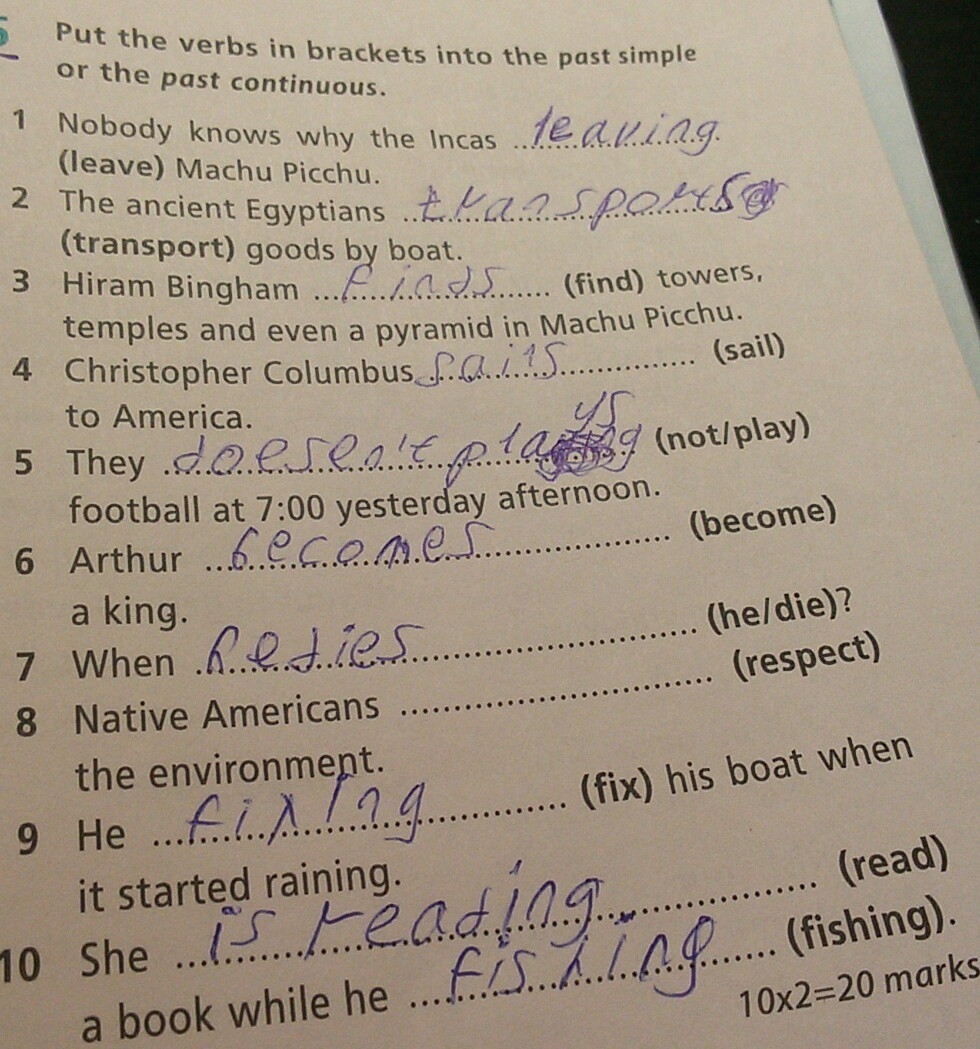 5 Put the verbs in brackets into the past simple
or the past continuous.
1 Nobody knows why the Incas leaving
(leave) Machu Picchu.
2 The ancient Egyptians transports
(transport) goods by boat.
3 Hiram Bingham finds (find) towers,
temples and even a pyramid in Machu Picchu.
4 Christopher Columbus sails (sail)
to America.
ys
5 They doesen't pla (not/play)
football at 7:00 yesterday afternoon.
6 Arthur becomes (become)
a king.
7 When hedies (he/die)?
8 Native Americans (respect)
the environment.
9 He fixing (fix) his boat when
it started raining.
10 She is reading (read)
a book while he fishing (fishing).
10x2=20 marks